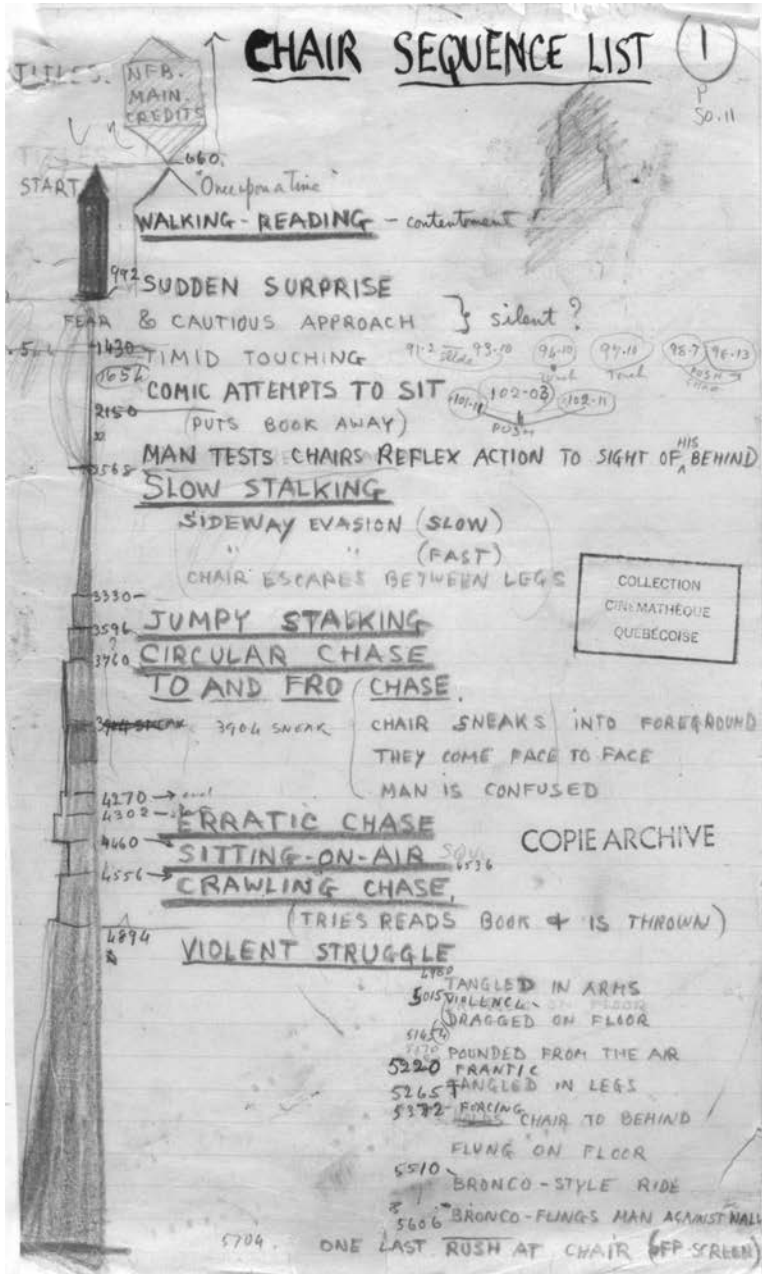 CHAIR SEQUENCE LIST 1
P
50.11
TITLES. NFB.
MAIN.
CREDITS
660.
START "Once upon a Time"
WALKING - READING - contentment
992 SUDDEN SURPRISE
FEAR & CAUTIOUS APPROACH } silent?
1430 TIMID TOUCHING 91-2 93-10 96-10 97-11 98-7 96-13
Touch Touch PUSH
1654 COMIC ATTEMPTS TO SIT 101-11 102-03 102-11
2150 (PUTS BOOK AWAY) PUSH
HIS
2568 MAN TESTS CHAIRS REFLEX ACTION TO SIGHT OF ^ BEHIND
SLOW STALKING
SIDEWAY EVASION (SLOW)
" " (FAST)
CHAIR ESCAPES BETWEEN LEGS
COLLECTION
CINÉMATHÈQUE
QUÉBÉCOISE
3330 -
3596 JUMPY STALKING
3760 CIRCULAR CHASE
TO AND FRO CHASE.
3904 SNEAK CHAIR SNEAKS INTO FOREGROUND
THEY COME FACE TO FACE
4270 → MAN IS CONFUSED
4302 - ERRATIC CHASE
COPIE ARCHIVE
4460 SITTING-ON-AIR
4536
4556 → CRAWLING CHASE,
(TRIES READS BOOK & IS THROWN)
4894 VIOLENT STRUGGLE
TANGLED IN ARMS
5015 VIOLENCE -
DRAGGED ON FLOOR
POUNDED FROM THE AIR
5220 FRANTIC
5265 TANGLED IN LEGS
5372 - FORCING CHAIR TO BEHIND
FLUNG ON FLOOR
5510 -
BRONCO-STYLE RIDE
5606 BRONCO-FLINGS MAN AGAINST WALL
5704. ONE LAST RUSH AT CHAIR (OFF-SCREEN)